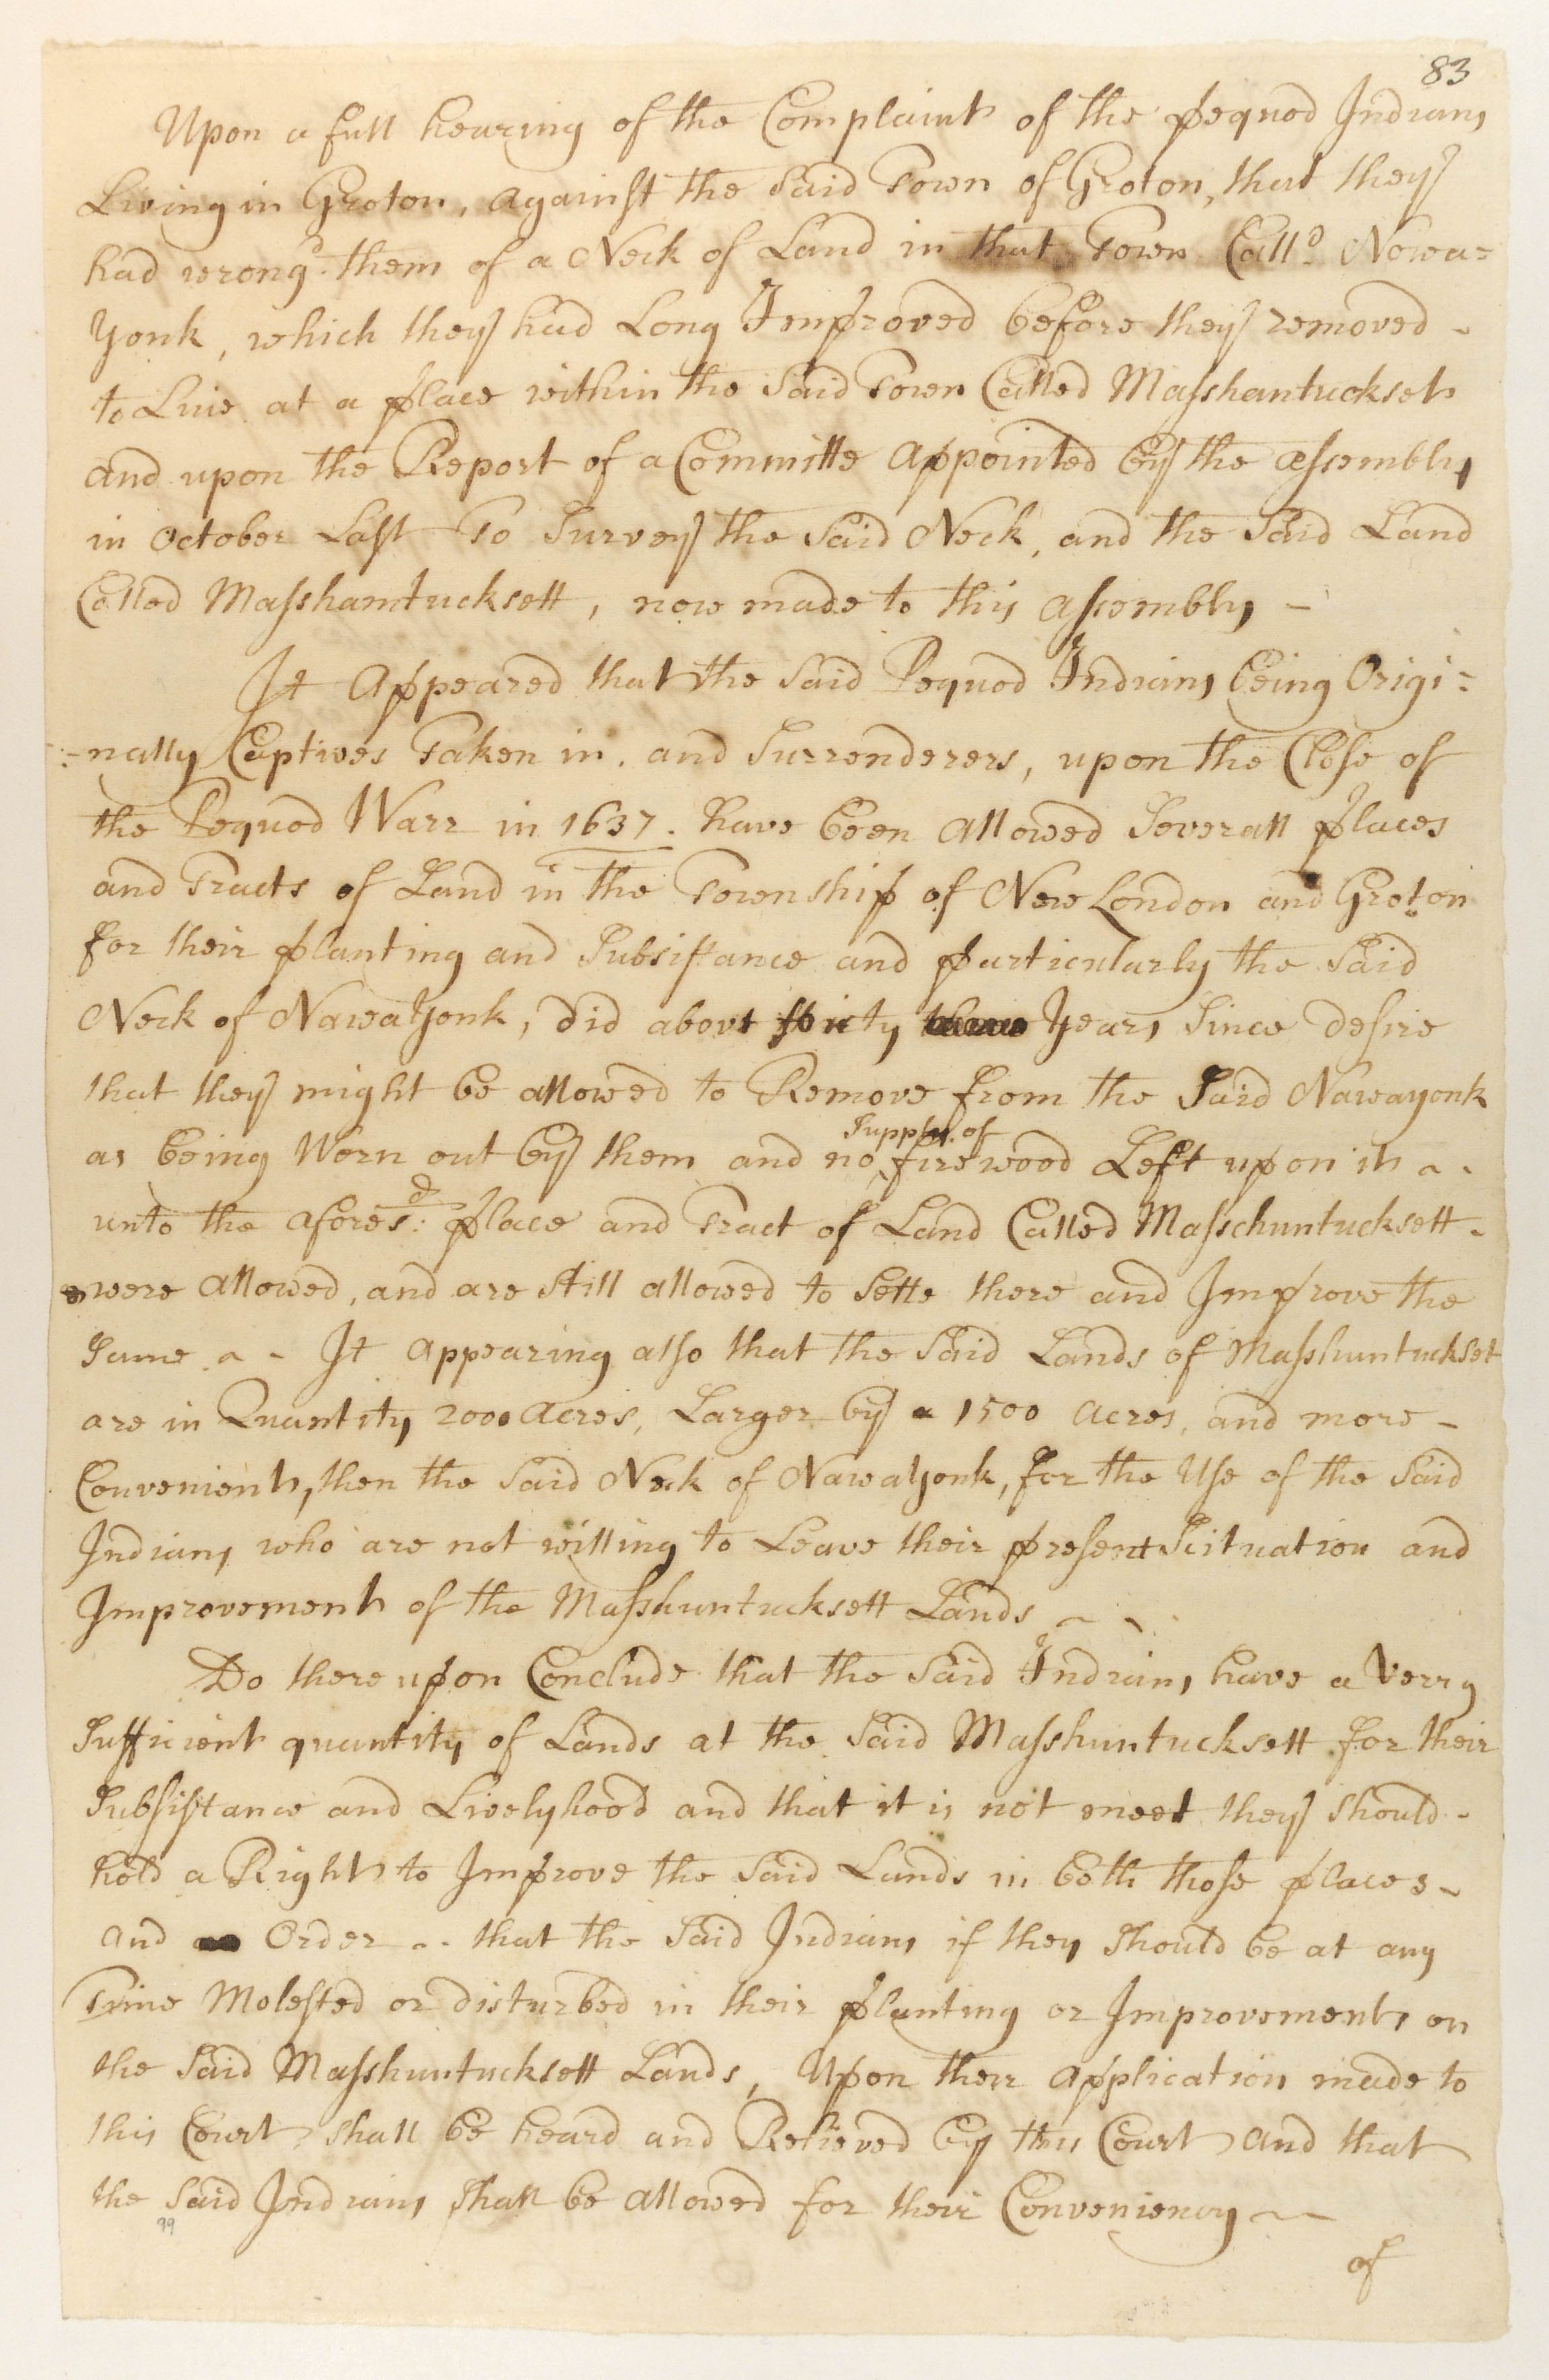 83
Upon a full hearing of the Complaint of the pequod Indians
Living in Groton, against the Said Town of Groton, that they
had wrongd. them of a Neck of Land in that Town Calld. Nowa=
yonk, which they had Long Improved before they removed -
to Live at a place within the Said Town Called Masshantuckset
and upon the Report of a Committe appointed by the assembly
in October Last To Survey the Said Neck, and the Said Land
Called Masshamtucksett, now made to this assembly -
It Appeared that the Said Pequod Indians being Origi:
:-nally Captives Taken in. and Surrenderers, upon the Close of
the Pequod Warr in 1637. have been allowed Severall places
and Tracts of Land in the Township of New London and Groton
for their planting and Subsistance and particularly the Said
Neck of Nawayonk, did about years Since desire
that they might be allowed to Remove from the Said Nawayonk
Supply of
as being Worn out by them and no firewood Left upon it - -
unto the afores:d place and Tract of Land Called Masschuntucksett -
were allowed, and are still allowed to Settle there and Improve the
Same - - It appearing also that the Said Lands of Masshuntuckset
are in Quantity 2000 acres, Larger by 1500 acres, and more -
Convenient, then the Said Neck of Nawayonk, for the Use of the Said
Indians, who are not willing to Leave their present Scituation and
Improvement of the Masshuntucksett Lands - -
Do there upon Conclude that the Said Indians have a Verry
Sufficient quantity of Lands at the Said Masshuntucksett for their
Subsistance and Livelyhood and that it is not meet they should -
hold a Right to Improve the Said Lands in both those places -
and Order - - that the Said Indians if they Should be at any
Time Molested or disturbed in their planting or Improvements on
the Said Masshuntucksett Lands, Upon their application made to
this Court shall be heard and Relieved by this Court and that
the Said Indians shall be allowed for their Conveniency - -
99
of